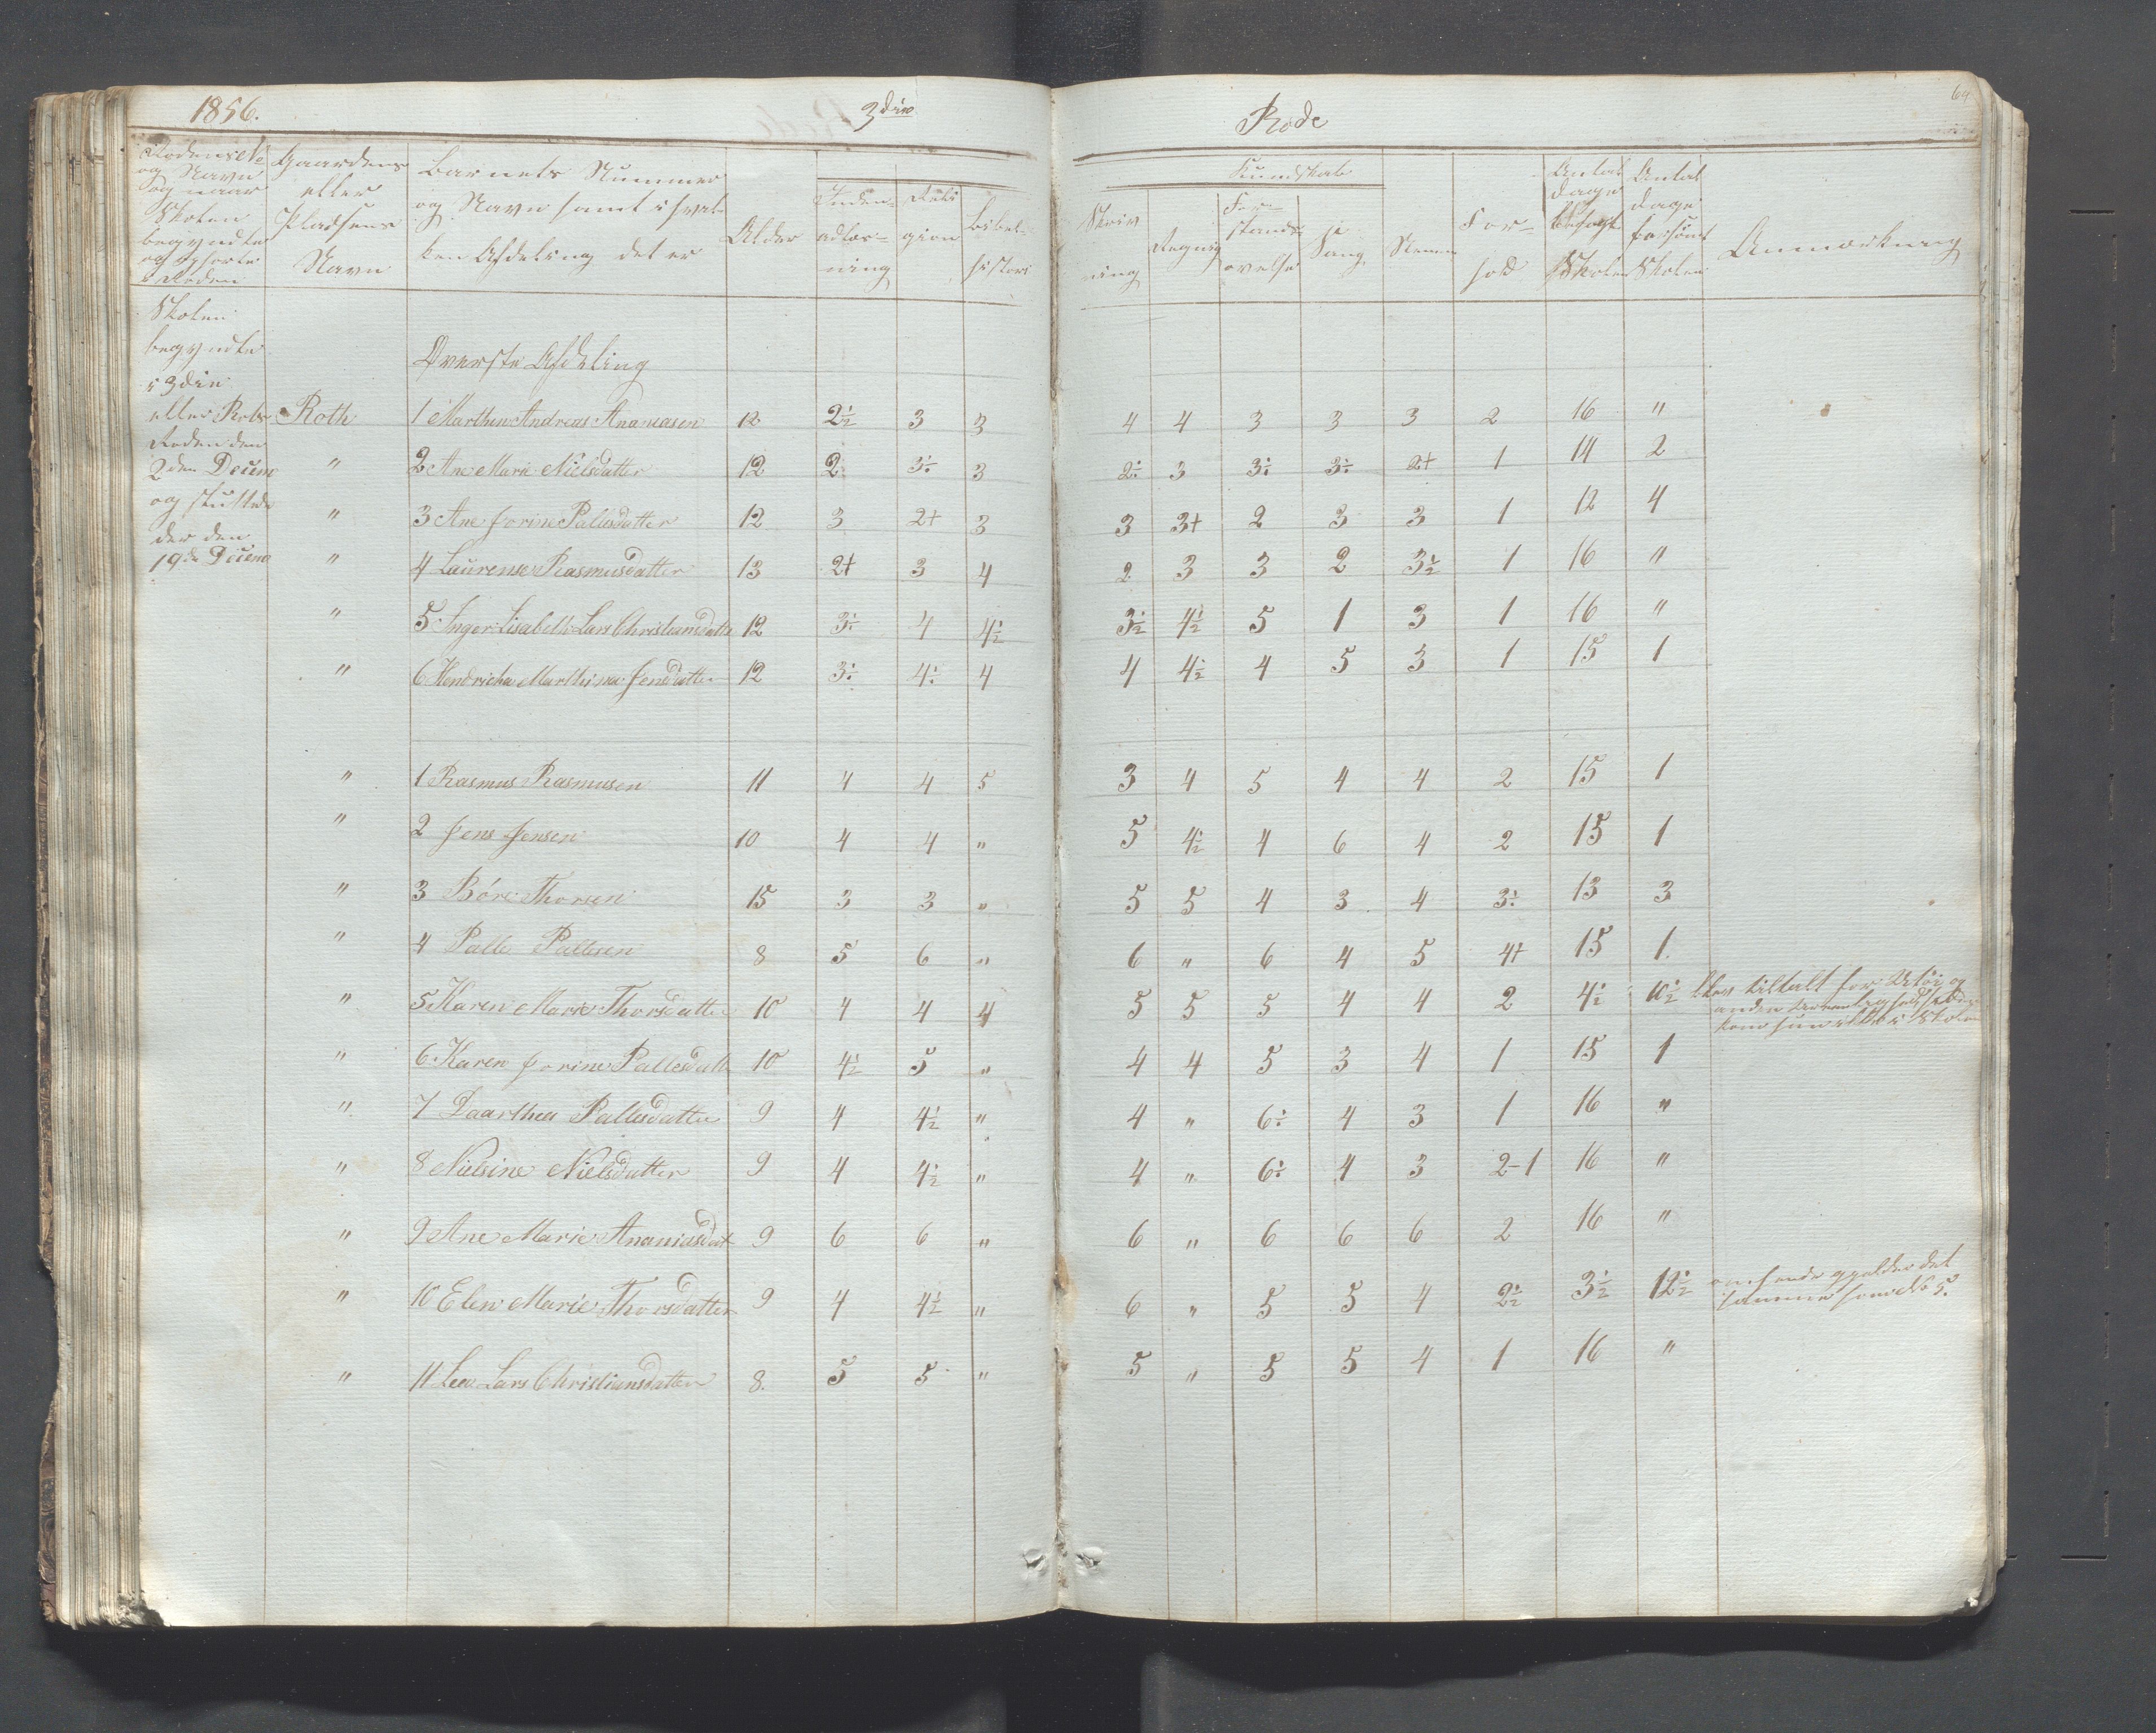 1856. 3die Rode 64
Rodens No og Navn og naar Skolen begyndte og ophørte i Roden
Gaardens eller Pladsens Navn
Barnets Nummer og Navn samt i hvilken Afdeling det er
Alder
Indenadlæsning
Religion
Bibelhistori
Kundskab
Skrivning
Regning
Forstandsøvelse
Sang
Nemme
Forhold
Antal dage besøgt Skolen
Antal dage forsømt Skolen
Anmærkning
Skolen
begyndte
i 3die
eller
Roden den
2den Decem
og sluttede
der den
19de Decem
Øverste Afdeling
Roth 1 Marthin Andreas Ananiasen 12 2½ 3 3 4 4 3 3 3 2 16 "
" 2 Ane Marie Nielsdatter 12 2 3÷ 3 2÷ 3 3÷ 3÷ 2+ 1 14 2
" 3 Ane Jorine Pallesdatter 12 3 2+ 3 3 3+ 2 3 3 1 12 4
" 4 Laurense Rasmusdatter 13 2+ 3 4 2 3 3 2 3½ 1 16 "
" 5 Inger Lisabeth Lars Christiansdatter 12 3÷ 4 4½ 3½ 4½ 5 1 3 1 16 "
" 6 Hendricha Marthina Jensdatter 12 3÷ 4÷ 4 4 4½ 4 5 3 1 15 1
" 1 Rasmus Rasmusen 11 4 4 5 3 4 5 4 4 2 15 1
" 2 Jens Jensen 10 4 4 " 5 4½ 4 6 4 2 15 1
" 3 Børe Thorsen 15 3 3 " 5 5 4 3 4 3÷ 13 3
" 4 Palle Pallesen 8 5 6 " 6 " 6 4 5 4+ 15 1
" 5 Karen Marie Thorsdatter 10 4 4 4 5 5 5 4 4 2 4½ 10½ blev tiltalt for Utøi og
anden
kom hun ikke i Skolen
" 6 Karen Jorine Pallesdatter 10 4½ 5 " 4 4 5 3 4 1 15 1
" 7 Daarthea Pallesdatter 9 4 4½ " 4 " 6÷ 4 3 1 16 "
" 8 Nielsine Nielsdatter 9 4 4½ " 4 " 6÷ 4 3 2-1 16 "
" 9 Ane Marie Ananiasdat 9 6 6 " 6 " 6 6 6 2 16 "
" 10 Elen Marie Thorsdatter 9 4 4½ " 6 " 5 5 4 2½ 3½ 12½ om hende gjelder det
samme som No 5.
" 11 Lea Lars Christiansdatter 8. 5 5 " 5 " 5 5 4 1 16 "